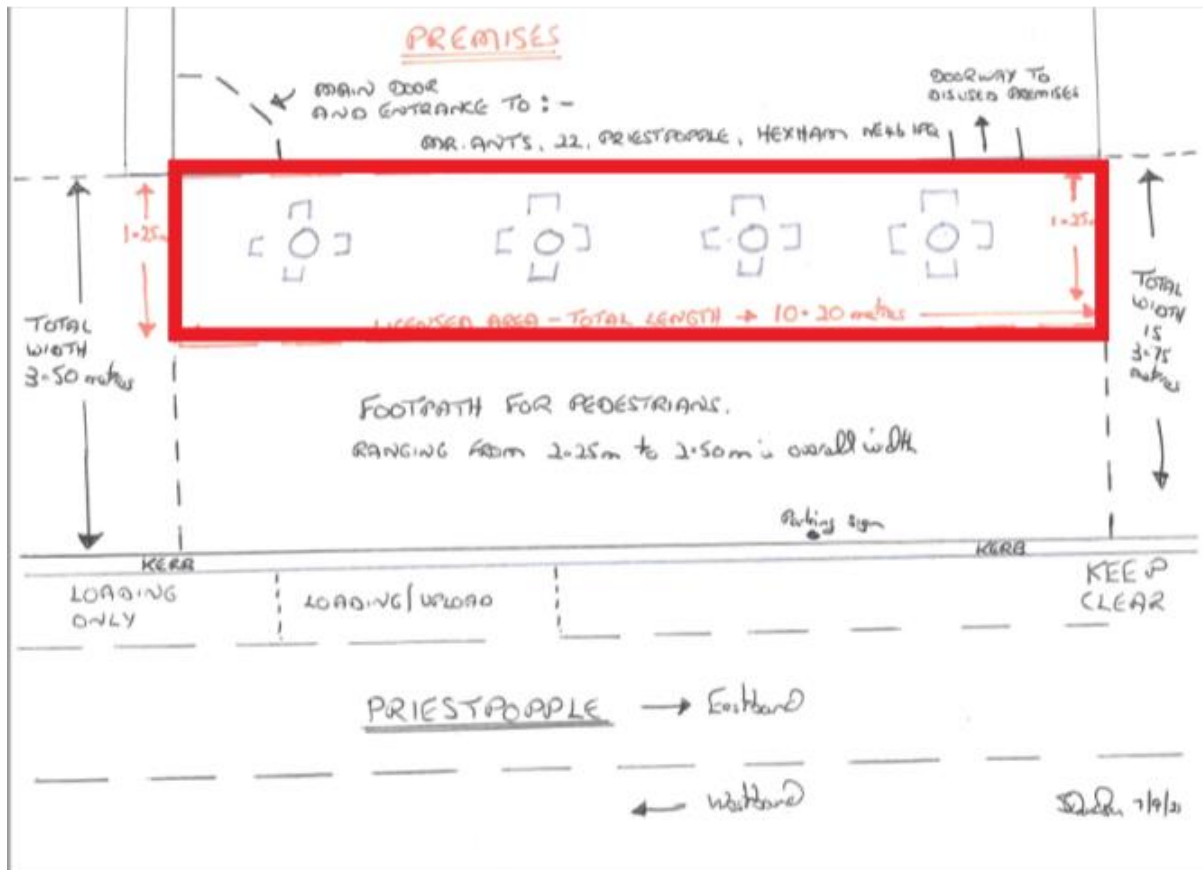 PREMISES
MAIN DOOR
AND ENTRANCE TO :-
MR. ANTS, 22, PRIESTPOPPLE, HEXHAM NE46 1PQ
DOORWAY TO
DISUSED PREMISES
1.25m
1.25m
LICENSED AREA - TOTAL LENGTH → 10.20 metres
TOTAL
WIDTH
3.50 metres
TOTAL
WIDTH
IS
3.75
metres
FOOTPATH FOR PEDESTRIANS.
RANGING FROM 2.25m to 2.50m in overall width
Parking sign
KERB
KERB
LOADING
ONLY
LOADING/UPLOAD
KEEP
CLEAR
PRIESTPOPPLE → Eastbound
← Westbound
7/9/21